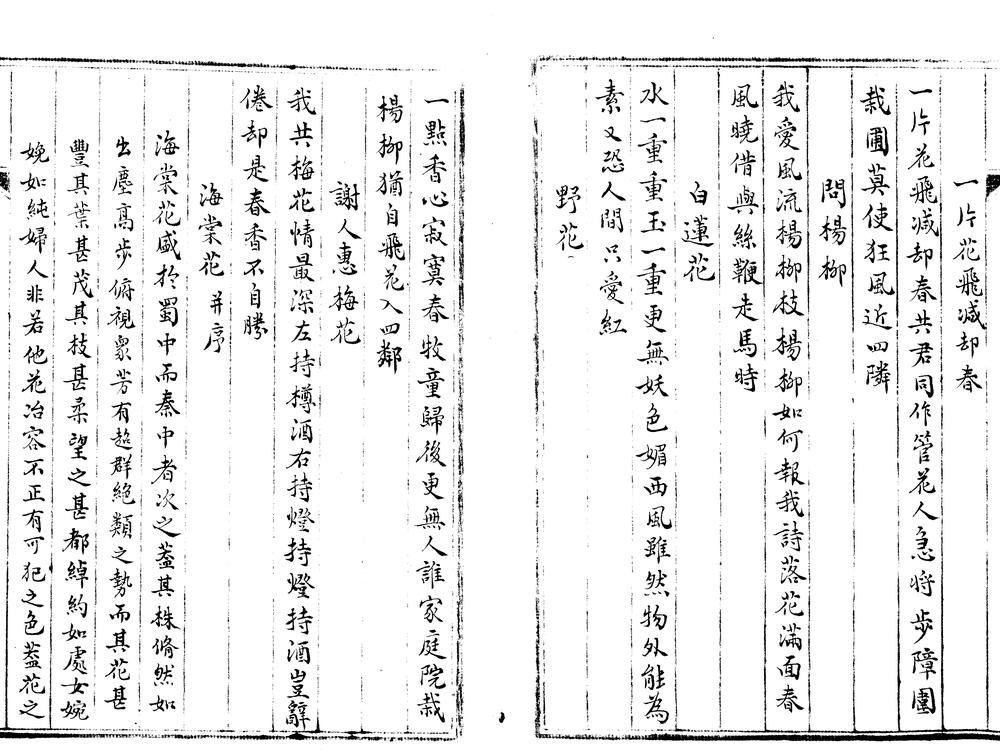 一片花飛減却春
一片花飛減却春共君同作管花人急将步障圍
栽圃莫使狂風近四隣
問楊柳
我愛風流楊柳枝楊柳如何報我詩落花滿面春
風曉借與絲鞭走馬時
白蓮花
水一重重玉一重更無妖色媚西風雖然物外能為
素又恐人間只愛紅
野花
一點香心寂寞春牧童歸後更無人誰家庭院栽
楊柳猶自飛花入四鄰
謝人惠梅花
我共梅花情最深左持樽酒右持燈持燈持酒豈辭
倦却是春香不自勝
海棠花并序
海棠花盛於蜀中而秦中者次之蓋其株翛然如
出塵高步俯視衆芳有超群絕類之勢而其花甚
豐其葉甚茂其枝甚柔望之甚都綽約如處女婉
娩如純婦人非若他花冶容不正有可犯之色蓋花之